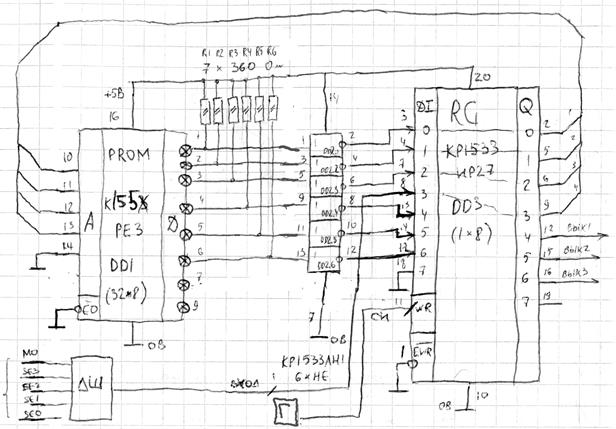 R1 R2 R3 R4 R5 R6
7 × 360 Ом
+5В
16
14
20
PROM
К155Х
РЕ3
DD1
(32*8)
A
D
EO
10
11
12
13
14
1
2
3
4
5
6
7
9
0В
1
3
5
9
11
13
DD2.1
DD2.2
DD2.3
DD2.4
DD2.5
DD2.6
2
4
6
8
10
12
7
0В
КР1533ЛН1
6*НЕ
DI
RG
Q
КР1533
ИР27
DD3
(1×8)
0
1
2
3
4
5
6
7
WR
EWR
3
4
7
8
13
14
17
18
11
1
СИ
0
1
2
3
4
5
6
7
2
5
6
9
12
15
16
19
1
2
3
4
ВЫХ1
ВЫХ2
ВЫХ3
0В
10
M0
SE3
SE2
SE1
SE0
ДШ
ВХОД
Г